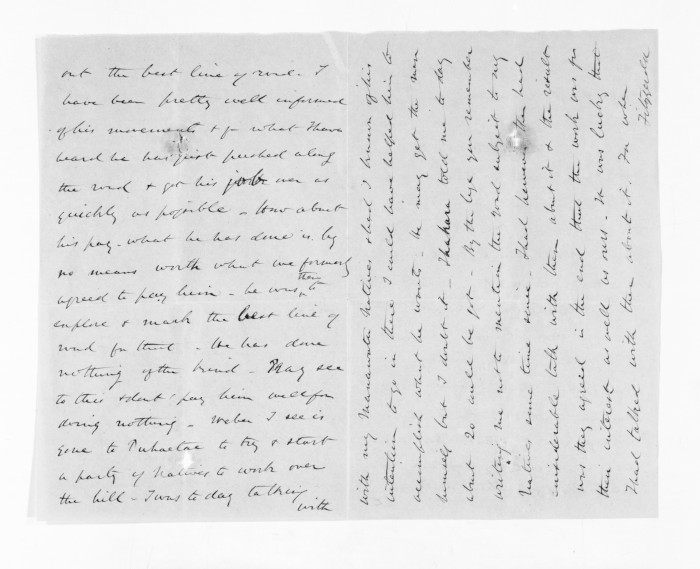 out the best line of road. I
have been pretty well informed
of his movements & from what I have
heard he has just pushed along
the road & got his job over as
quickly as possible - How about
his pay - what he has done is by
no means worth what we formerly
agreed to pay him - he was then to
explore & mark the best line of
road for that - He has done
nothing of the kind - Pray see
to this & dont pay him well for
doing nothing - Weber I see is
gone to Puhaetoe to try & start
a party of Natives to work over
the hill - I was to day talking
with
with my Manawatu Natives & had I known of his
intention to go in there I could have helped him to
accomplish what he wants. He may get the men
himself but I doubt it - Ihakara told me to day
about 20 could be got - By the bye you remember
writing me not to mention the road subject to my
Natives some time since. I had however then had
considerable talk with them about it & the result
was they agreed in the end that the work was for
their interest as well as ours - It was lucky that
I had talked with them about it. For when
Fitzgerald